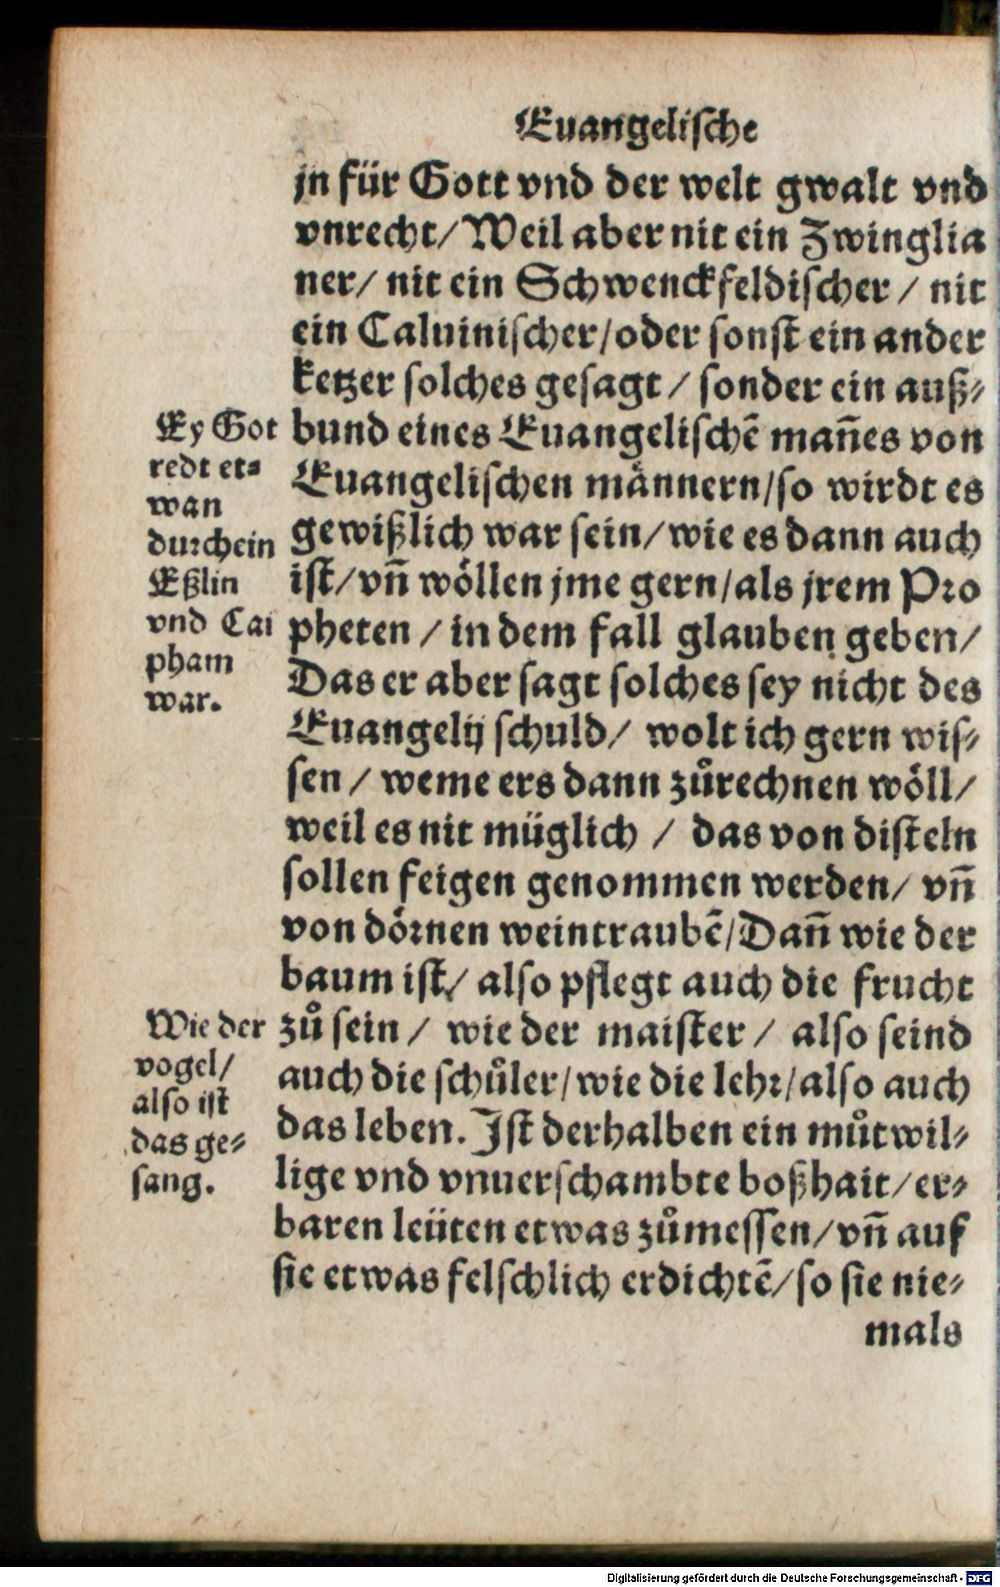 Euangelische
jn für Gott vnd der welt gwalt vnd
vnrecht/ Weil aber nit ein Zwinglia
ner/ nit ein Schwenckfeldischer / nit
ein Caluinischer/oder sonst ein ander
ketzer solches gesagt / sonder ein auß⸗
bund eines Euangelischē mañes von
Euangelischen männern/so wirdt es
gewißlich war sein/ wie es dann auch
ist/ vñ wöllen jme gern/als jrem Pro
pheten / in dem fall glauben geben/
Das er aber sagt solches sey nicht des
Euangelij schuld/ wolt ich gern wis⸗
sen / weme ers dann zůrechnen wöll/
weil es nit müglich / das von disteln
sollen feigen genommen werden/ vñ
von dörnen weintraubē/Dañ wie der
baum ist/ also pflegt auch die frucht
zů sein / wie der maister / also seind
auch die schůler/wie die lehr/also auch
das leben. Ist derhalben ein můtwil⸗
lige vnd vnuerschambte boßhait/ er⸗
baren leüten etwas zůmessen/ vñ auf
sie etwas felschlich erdichtē/ so sie nie⸗
mals
Ey Got
redt et⸗
wan
durch ein
Eßlin
vnd Cai
pham
war.
Wie der
vogel/
also ist
das ge⸗
sang.
Digitalisierung gefördert durch die Deutsche Forschungsgemeinschaft - DFG